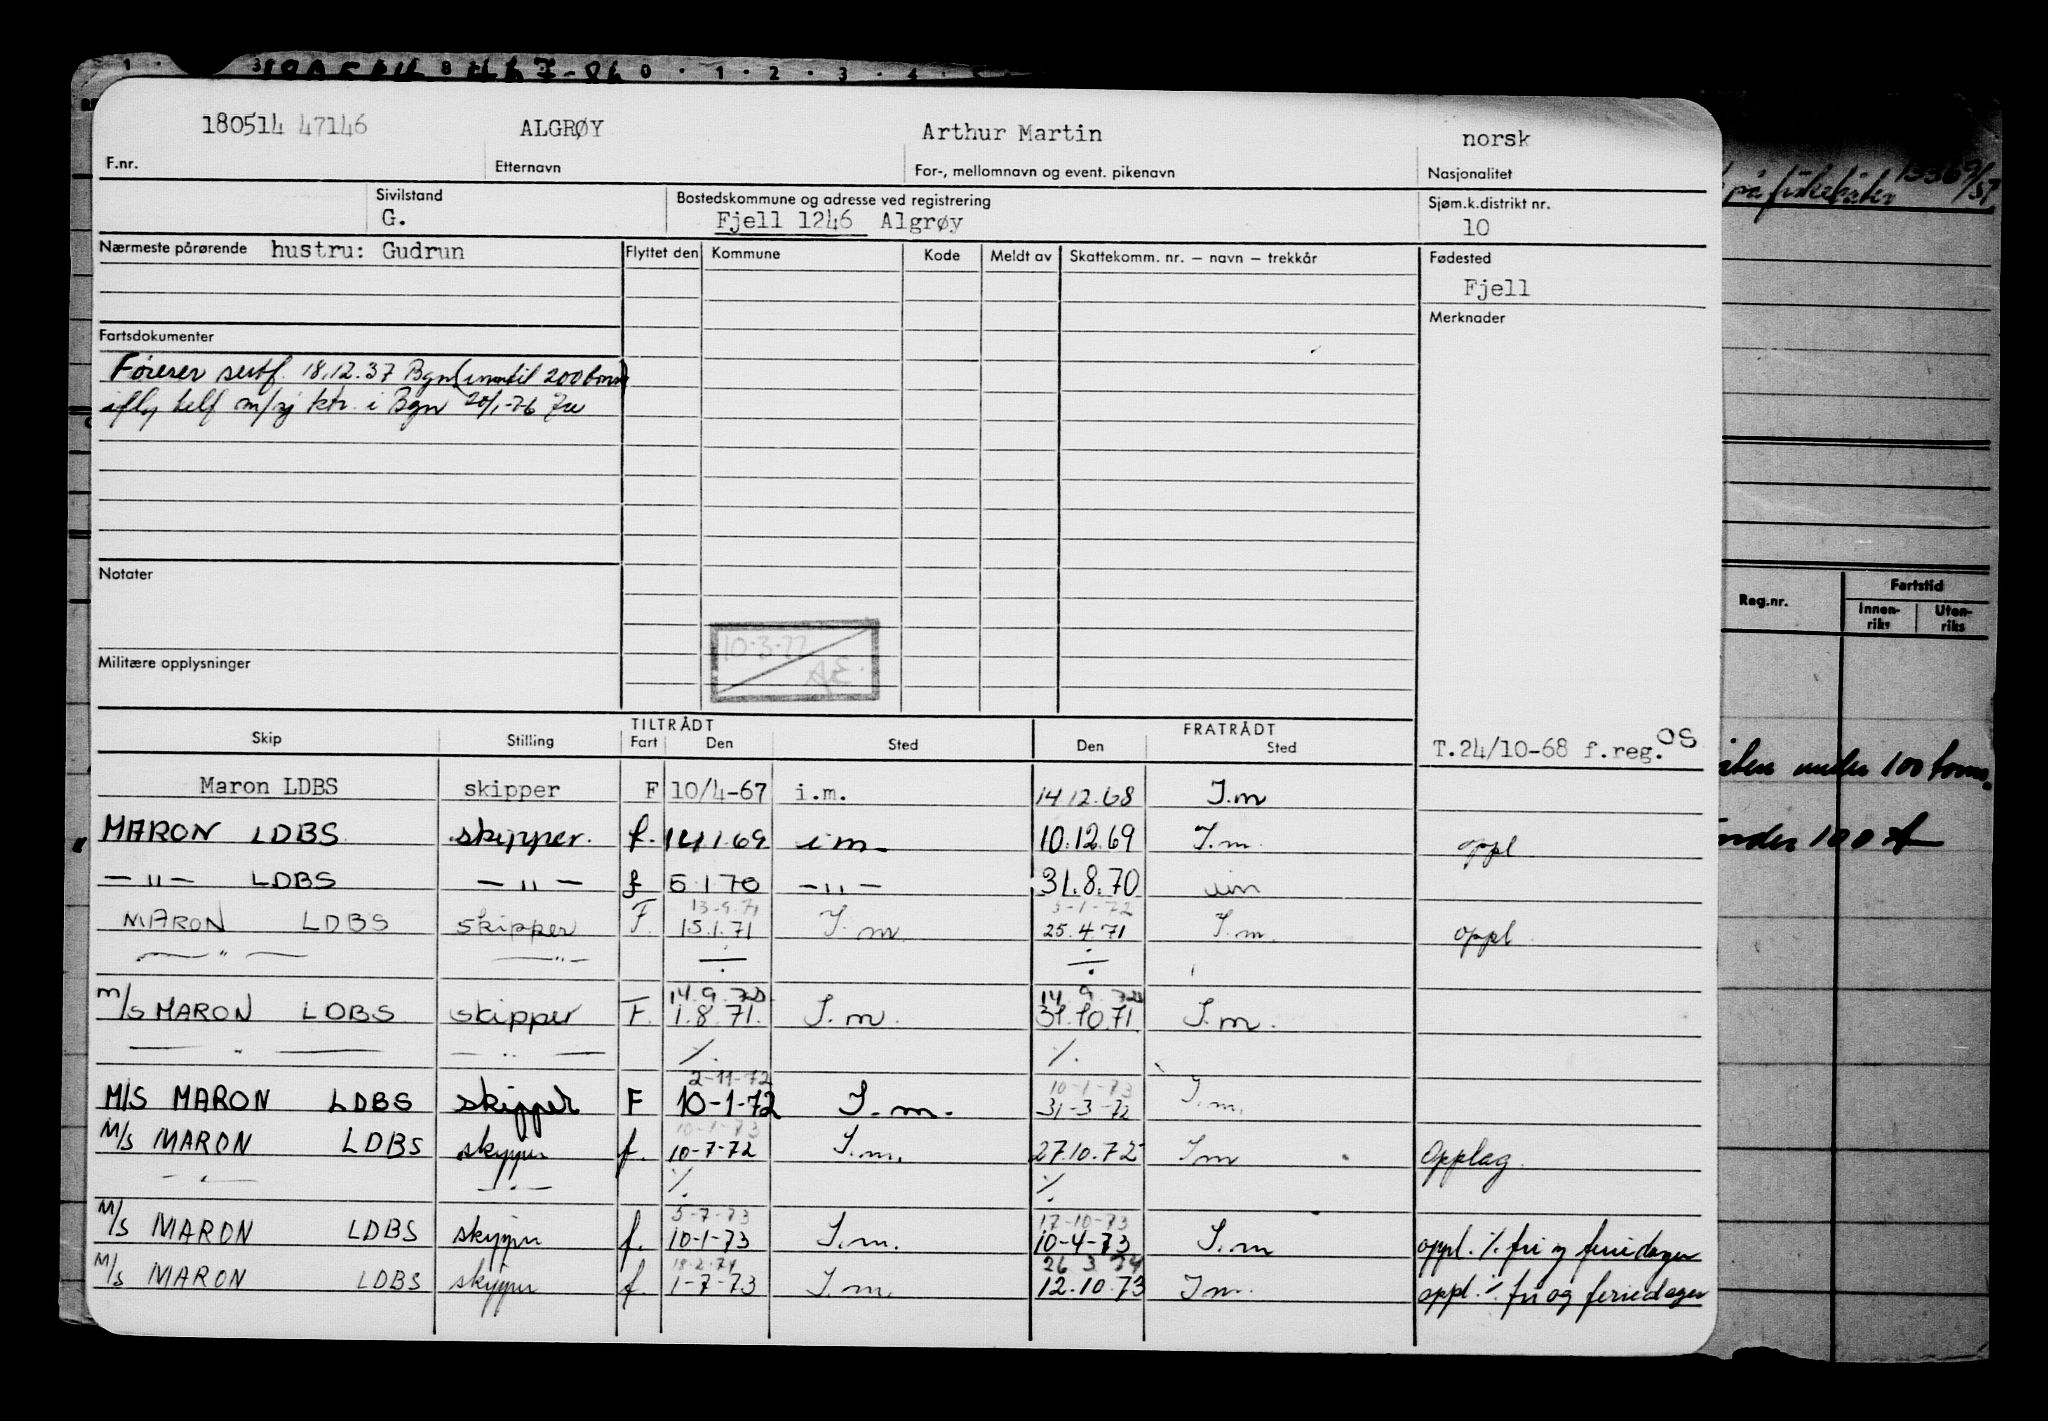 180514 47146 ALGRØY Arthur Martin norsk
F.nr. Etternavn For-, mellomnavn og event. pikenavn Nasjonalitet
Sivilstand Bostedskommune og adresse ved registrering Sjøm.k.distrikt nr.
G. Fjell 1246 Algrøy 10
Nærmeste pårørende hustru: Gudrun Flyttet den Kommune Kode Meldt av Skattekomm. nr. – navn – trekkår Fødested
Fjell
Merknader
Fartsdokumenter
18.12.37 Bgn 200 tonn)
m/sj ktr. i Bgn 20/1-76
Notater
10.3.77
AE.
Militære opplysninger
TILTRÅDT FRATRÅDT
Skip Stilling Fart Den Sted Den Sted
T.24/10-68 f.reg. OS
Maron LDBS skipper F 10/4-67 i.m. 14.12.68 I.m
MARON LDBS skipper. f. 14.1.69 i m 10.12.69 I.m. oppl
—"— LDBS —"— f 5.1.70 —"— 31.8.70 im
13-9-71 3-1-72
MARON LDBS skipper F. 15.1.71 I.m 25.4.71 I.m. oppl
—"— —"— ÷ ÷
14.9.72 14.9.72
M/S MARON LDBS skipper F. 1.8.71. I.m. 31.10.71 I.m.
—"— —"— ./. ./.
2-11-72 10-1-73
M/S MARON LDBS skipper F 10-1-72 I.m. 31-3-72 I.m.
10-1-73
M/S MARON LDBS skipper f. 10-7-72 I.m. 27.10.72 Im Opplag.
—"— —"— ./. ./.
5-7-73 17-10-73
M/S MARON LDBS skipper f. 10-1-73 I.m. 10-4-73 I.m oppl. ./. fri og feriedager
18.2.74 26 3 74
M/S MARON LDBS skipper f. 1-7-73 I.m. 12.10.73 Im. oppl. ./. fri og feriedager
13369/57
Reg.nr. Fartstid
Innen-riks Uten-riks
under 100 tonn.
under 100 t